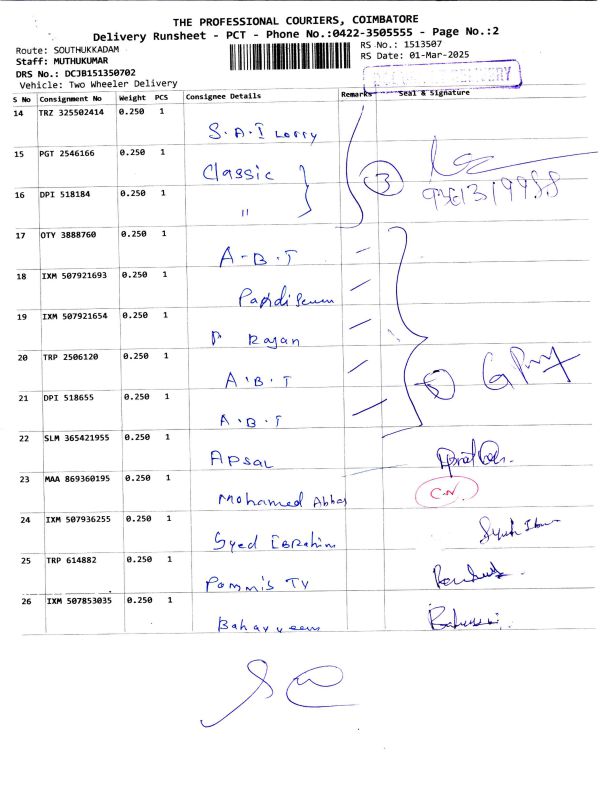 THE PROFESSIONAL COURIERS, COIMBATORE
Delivery Runsheet - PCT - Phone No.:0422-3505555 - Page No.:2
Route: SOUTHUKKADAM RS No.: 1513507
Staff: MUTHUKUMAR RS Date: 01-Mar-2025
DRS No.: DCJB151350702
Vehicle: Two Wheeler Delivery
S No Consignment No Weight PCS Consignee Details Remarks Seal & Signature
14 TRZ 325502414 0.250 1 S.A.I Lorry
15 PGT 2546166 0.250 1 Classic 3
16 DPI 518184 0.250 1 "
17 OTY 3888760 0.250 1 A-B.T
18 IXM 507921693 0.250 1
19 IXM 507921654 0.250 1 P Rajan
20 TRP 2506120 0.250 1 A.B.T
21 DPI 518655 0.250 1 A.B.T
22 SLM 365421955 0.250 1 APSAL
23 MAA 869360195 0.250 1 Mohamed Abbas C.N.
24 IXM 507936255 0.250 1 Syed IBRahim
25 TRP 614882 0.250 1 Pommis TV
26 IXM 507853035 0.250 1